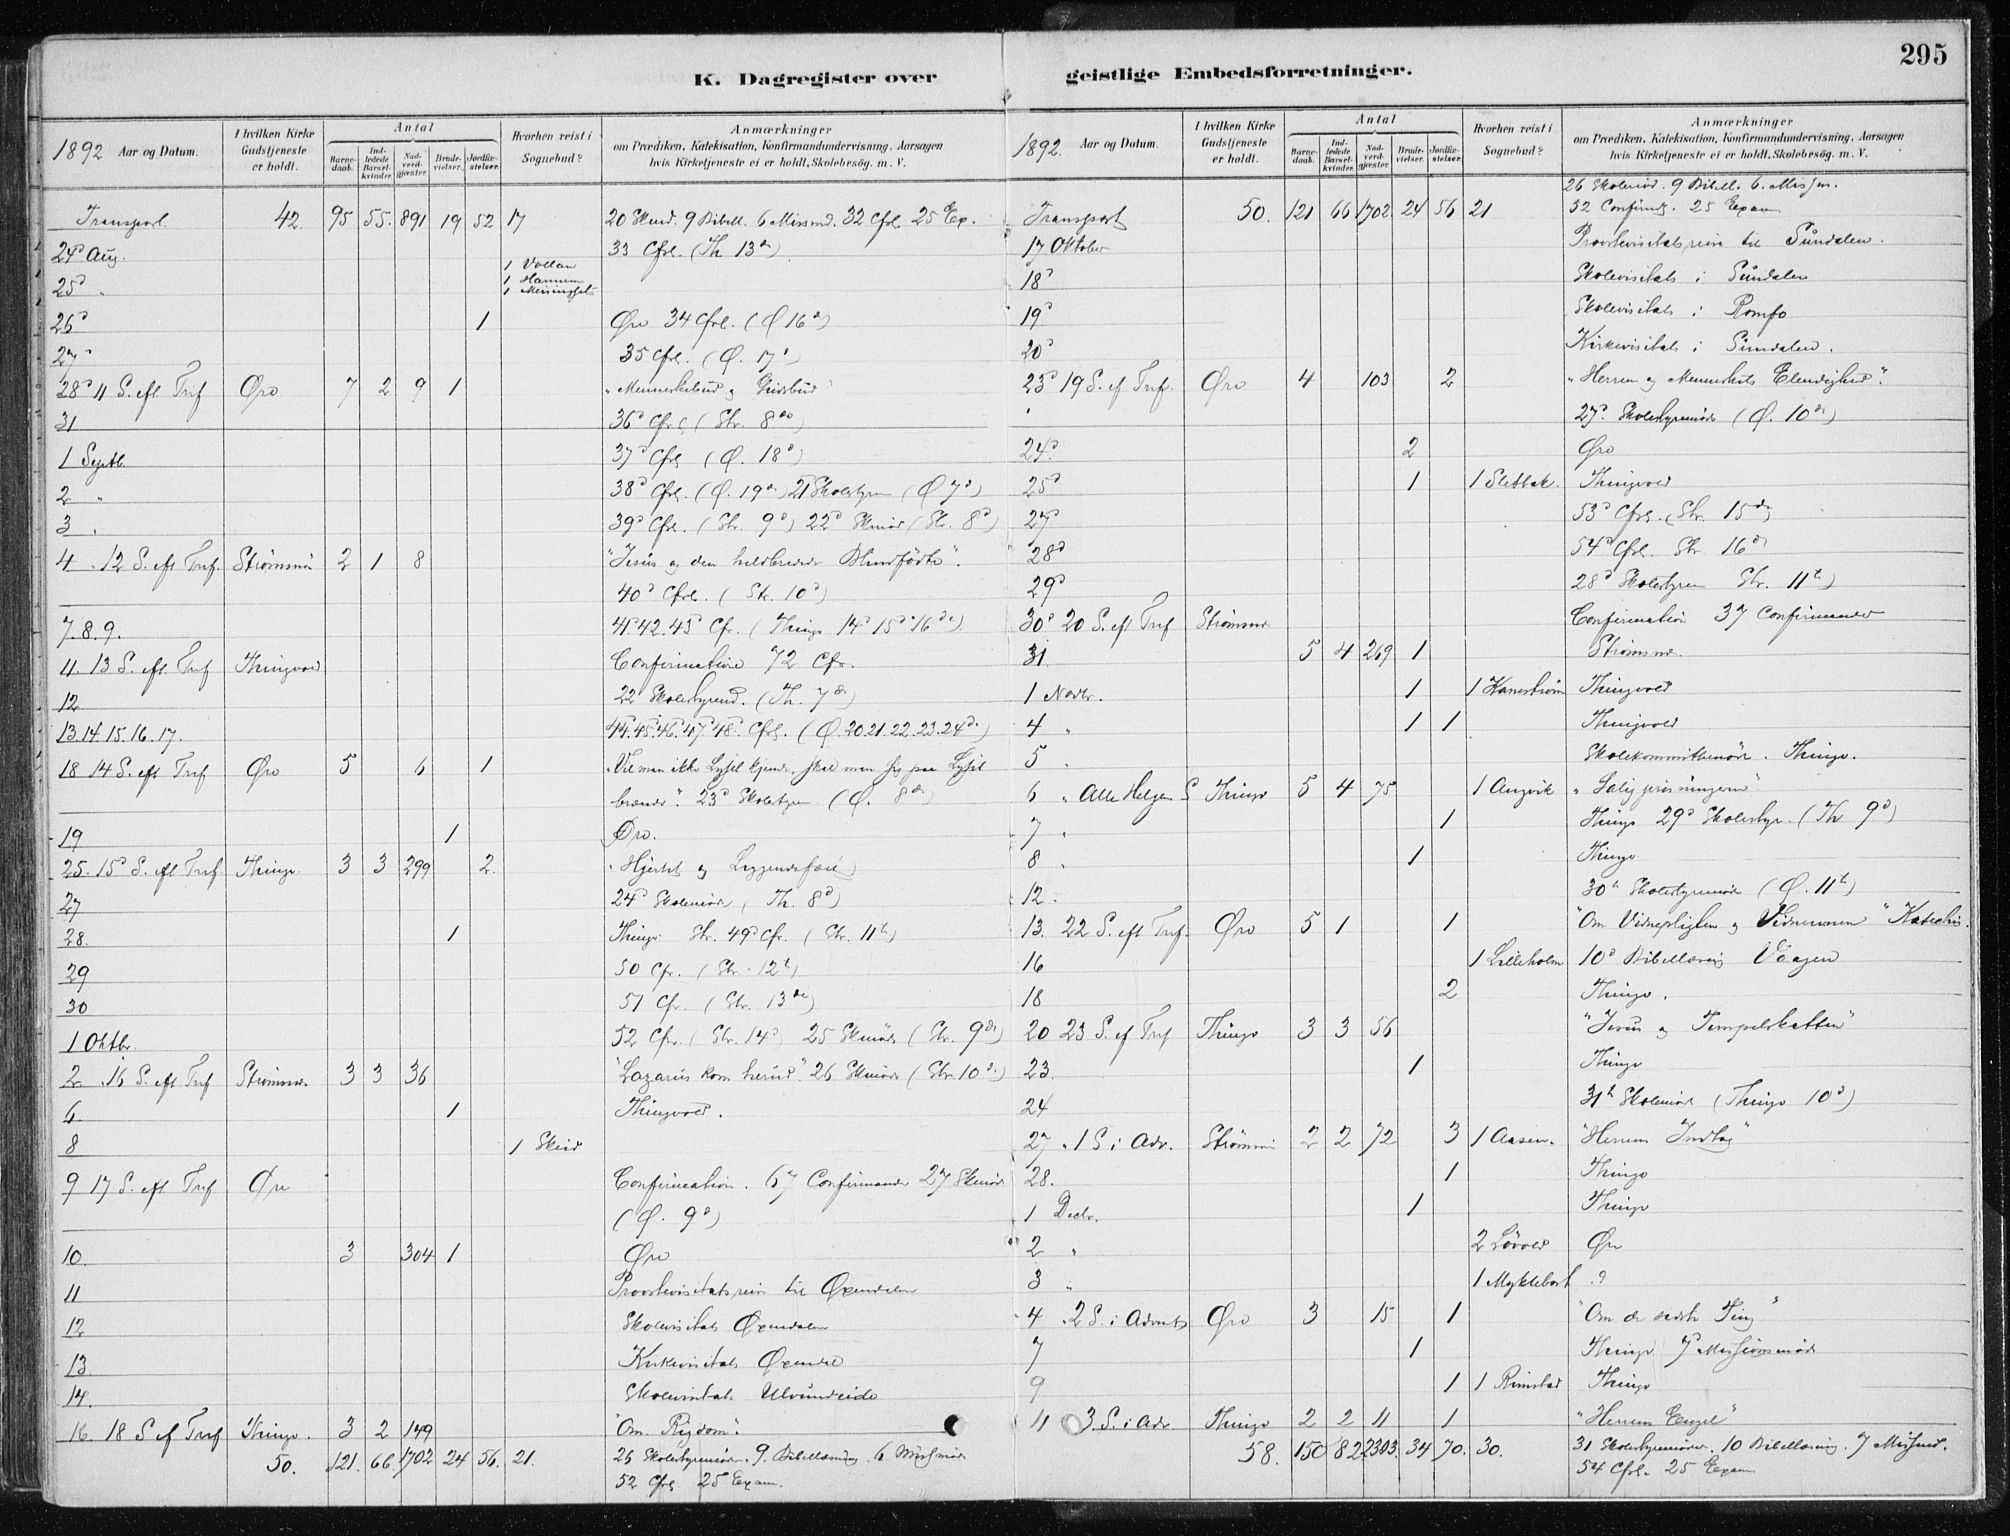 295
K. Dagregister over
geistlige Embedsforretninger.
1892 Aar og Datum.
I hvilken Kirke Gudstjeneste er holdt.
Antal
Barnedaab.
Indledede Barselkvinder.
Nadverdgjæster.
Brudevielser.
Jordfæstelser.
Hvorhen reist i Sognebud?
Anmærkninger
om Prædiken, Katekisation, Konfirmandundervisning, Aarsagen
hvis Kirketjeneste ei er holdt, Skolebesøg. m. V.
Transport 42. 95 55. 891 19 52 17 20 Skmd. 9 Bibell. 6 Missmd. 32 Cfrl. 25 Ex.
24d Aug. 33 Cfrl. (Th 13de)
25d 1 Vollan
1 Hannem
1 Meisingset
26d 1 Øre 34 Cfrl. (Ø 16d)
27d 35 Cfrl. (Ø. 17d)
28d 11 S. eft Tref Øre 7 2 9 1 "Menneskebud og Gudsbud"
31 36d Cfrl (Str. 8de)
1 Septb. 37d Cfrl (Ø. 18d)
2 " 38d Cfrl. (Ø. 19de) 21 Skolestyrm (Ø 7d)
3 " 39d Cfrl. (Str. 9d) 22d Skmöd (Str. 8d)
4 . 12 S. eft Tref. Strømsnæ 2 1 8 "Jesus og den helbredede Blindfödte".
40d Cfrl. (Str. 10d)
7. 8. 9. 41. 42. 43d Cfr. (Thingv 14d 15d 16de)
11. 13 S. eft. Tref Thingvold Confirmation 72 Cfr.
12 22 Skolestyrmd. (Th. 7de)
13. 14. 15. 16. 17. 44. 45. 46. 47. 48. Cfrl. (Ø. 20. 21. 22. 23. 24de)
18 14 S. eft Tref Øre 5 6 1 "Vil man ikke Lyset kjende, skal man sig paa Lyset
brænde". 23d Skolestyrm (Ø. 8de)
19 1 Øre.
25. 15d S. eft Tref. Thingv. 3 3 299 2. "Hjertet og
27 24d Skolemöd (Th. 8d)
28. 1 Thingv Str. 49d Cfr. (Str. 11te)
29 50 Cfr. (Str. 12te)
30 51 Cfr. (Str. 13de)
1 Oktbr. 52 Cfr. (Str. 14d) 25 Skmöde (Str. 9de)
2 . 16 S. eft Tref Strømsnæ 3 3 36 "Lazarus kom herud" 26 Skmöde (Str. 10de)
6. 1 Thingvold.
8 1 Skeid
9 17 S. eft Tref Øre Confirmation. 67 Confirmander 27 Skmöde
(Ø. 9d)
10. 3 304 1 Øre
11 Provstevisitatsreise til Øxendalen
12 Skolevisitats Øxendalen
13. Kirkevisitats Øxendal
14. Skolevisitats Ulvundeide
16. 18 S ef Tref Thingv. 3 2 149 "Om Rigdom".
50. 121. 66. 1702 24 56. 21. 26 Skolestyremöder. 9. Bibellæsning. 6 Missmöde
52 Cfrl 25 Exam.
1892. Aar og Datum.
I hvilken Kirke Gudstjeneste er holdt.
Antal
Barnedaab.
Indledede Barselkvinder.
Nadverdgjæster.
Brudevielser.
Jordfæstelser.
Hvorhen reist i Sognebud?
Anmærkninger
om Prædiken, Katekisation, Konfirmandundervisning, Aarsagen
hvis Kirketjeneste ei er holdt, Skolebesøg. m. V.
26 Skolemöd. 9 Bibell. 6. Missm.
Transport 50. 121 66 1702. 24 56 21 32 Confirmf. 25 Exam
17 Oktober Provstevisitatsreise til Sundalen.
18d Skolevisitats i Sundalen
19d Skolevisitats i Romfo
20d Kirkevisitats i Sundalen.
23d 19 S. ef Tref. Øre 4 103 2 "Herren og Menneskets Elendighed".
27d. Skolestyremöde (Ø. 10de)
24d. 2 Øre
25d 1 1 Sletbak. Thingvold
27 53d Cfrl. (Str. 15de)
28d 54d Cfrl. Str. 16d
29d 28d Skolestyrm Str. 11te)
30d 20 S. eft Tref Strømsnæ Confirmation 37 Confirmander
31. 5 4 269 1 Strømsnæ.
1 Novbr. 1 1 Kanestrøm Thingvold
4 " 1 1 Thingvold
5 . Skolekommittemöde. Thingv.
6 " Alle Helgen S Thingv 5 4 75 1 Angvik "Saligprisningerne"
7 " 1 Thingv 29d Skolestyr. (Th 9d)
8 " 1 Thingv
12. 30te Skolestyremöde (Ø. 11te)
13. 22 S. eft Tref. Øre 5 1 1 "Om Vidnepligten og Vidneevnen" Katechis.
16 1 Lilleholm 10d Bibellæsning Vaagen
18 2 Thingv.
20 23 S. ef Tref Thingv 3 3 56 "Jesus og Tempelskatten"
23. 1 Thingv
24 31te Skolemöde (Thingv 10d)
27 . 1 S. i Adv. Strømsnæ 2 2 72 3 1 Aasen. "Herrens Indtog"
28. 1 Thingv
1 Decbr. 1 Thingv
2 " 2 Lövold Øre
3 " 1 Myklebost ?
4 . 2 S. i Advents Øre 3 15 1 "Om de sidste Ting"
7 1 Thingv 7 Missionsmöde
9 1 1 Rimstad Thingv
11 3 S. i Adv Thingv 2 2 11 1 "Herrens Engel"
58. 150 82 2303. 34 70. 30. 31 Skolestyremöder. 10 Bibellæsning. 7 Missmd.
54 Cfrl. 25 Exam